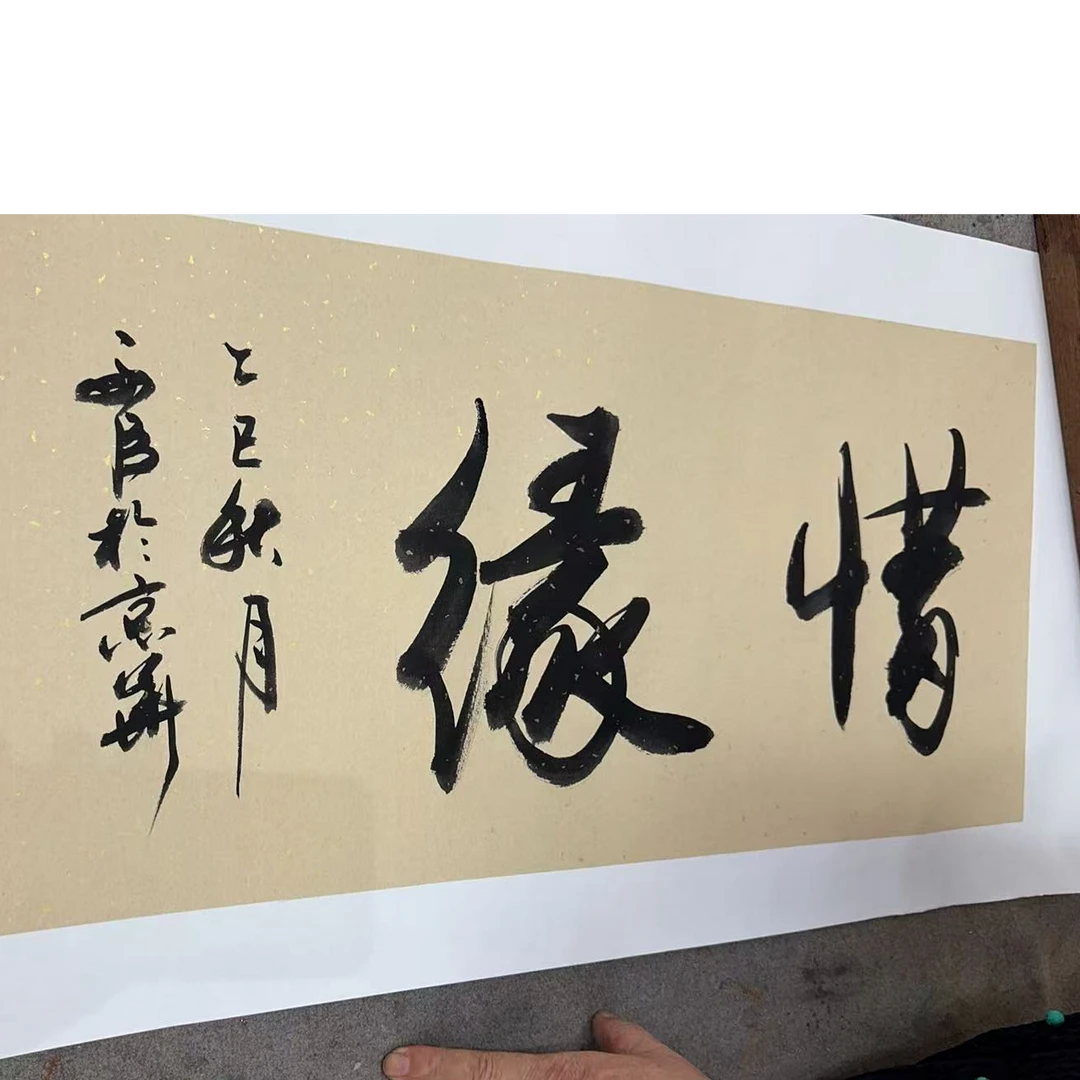 惜緣
乙巳秋月
於京華